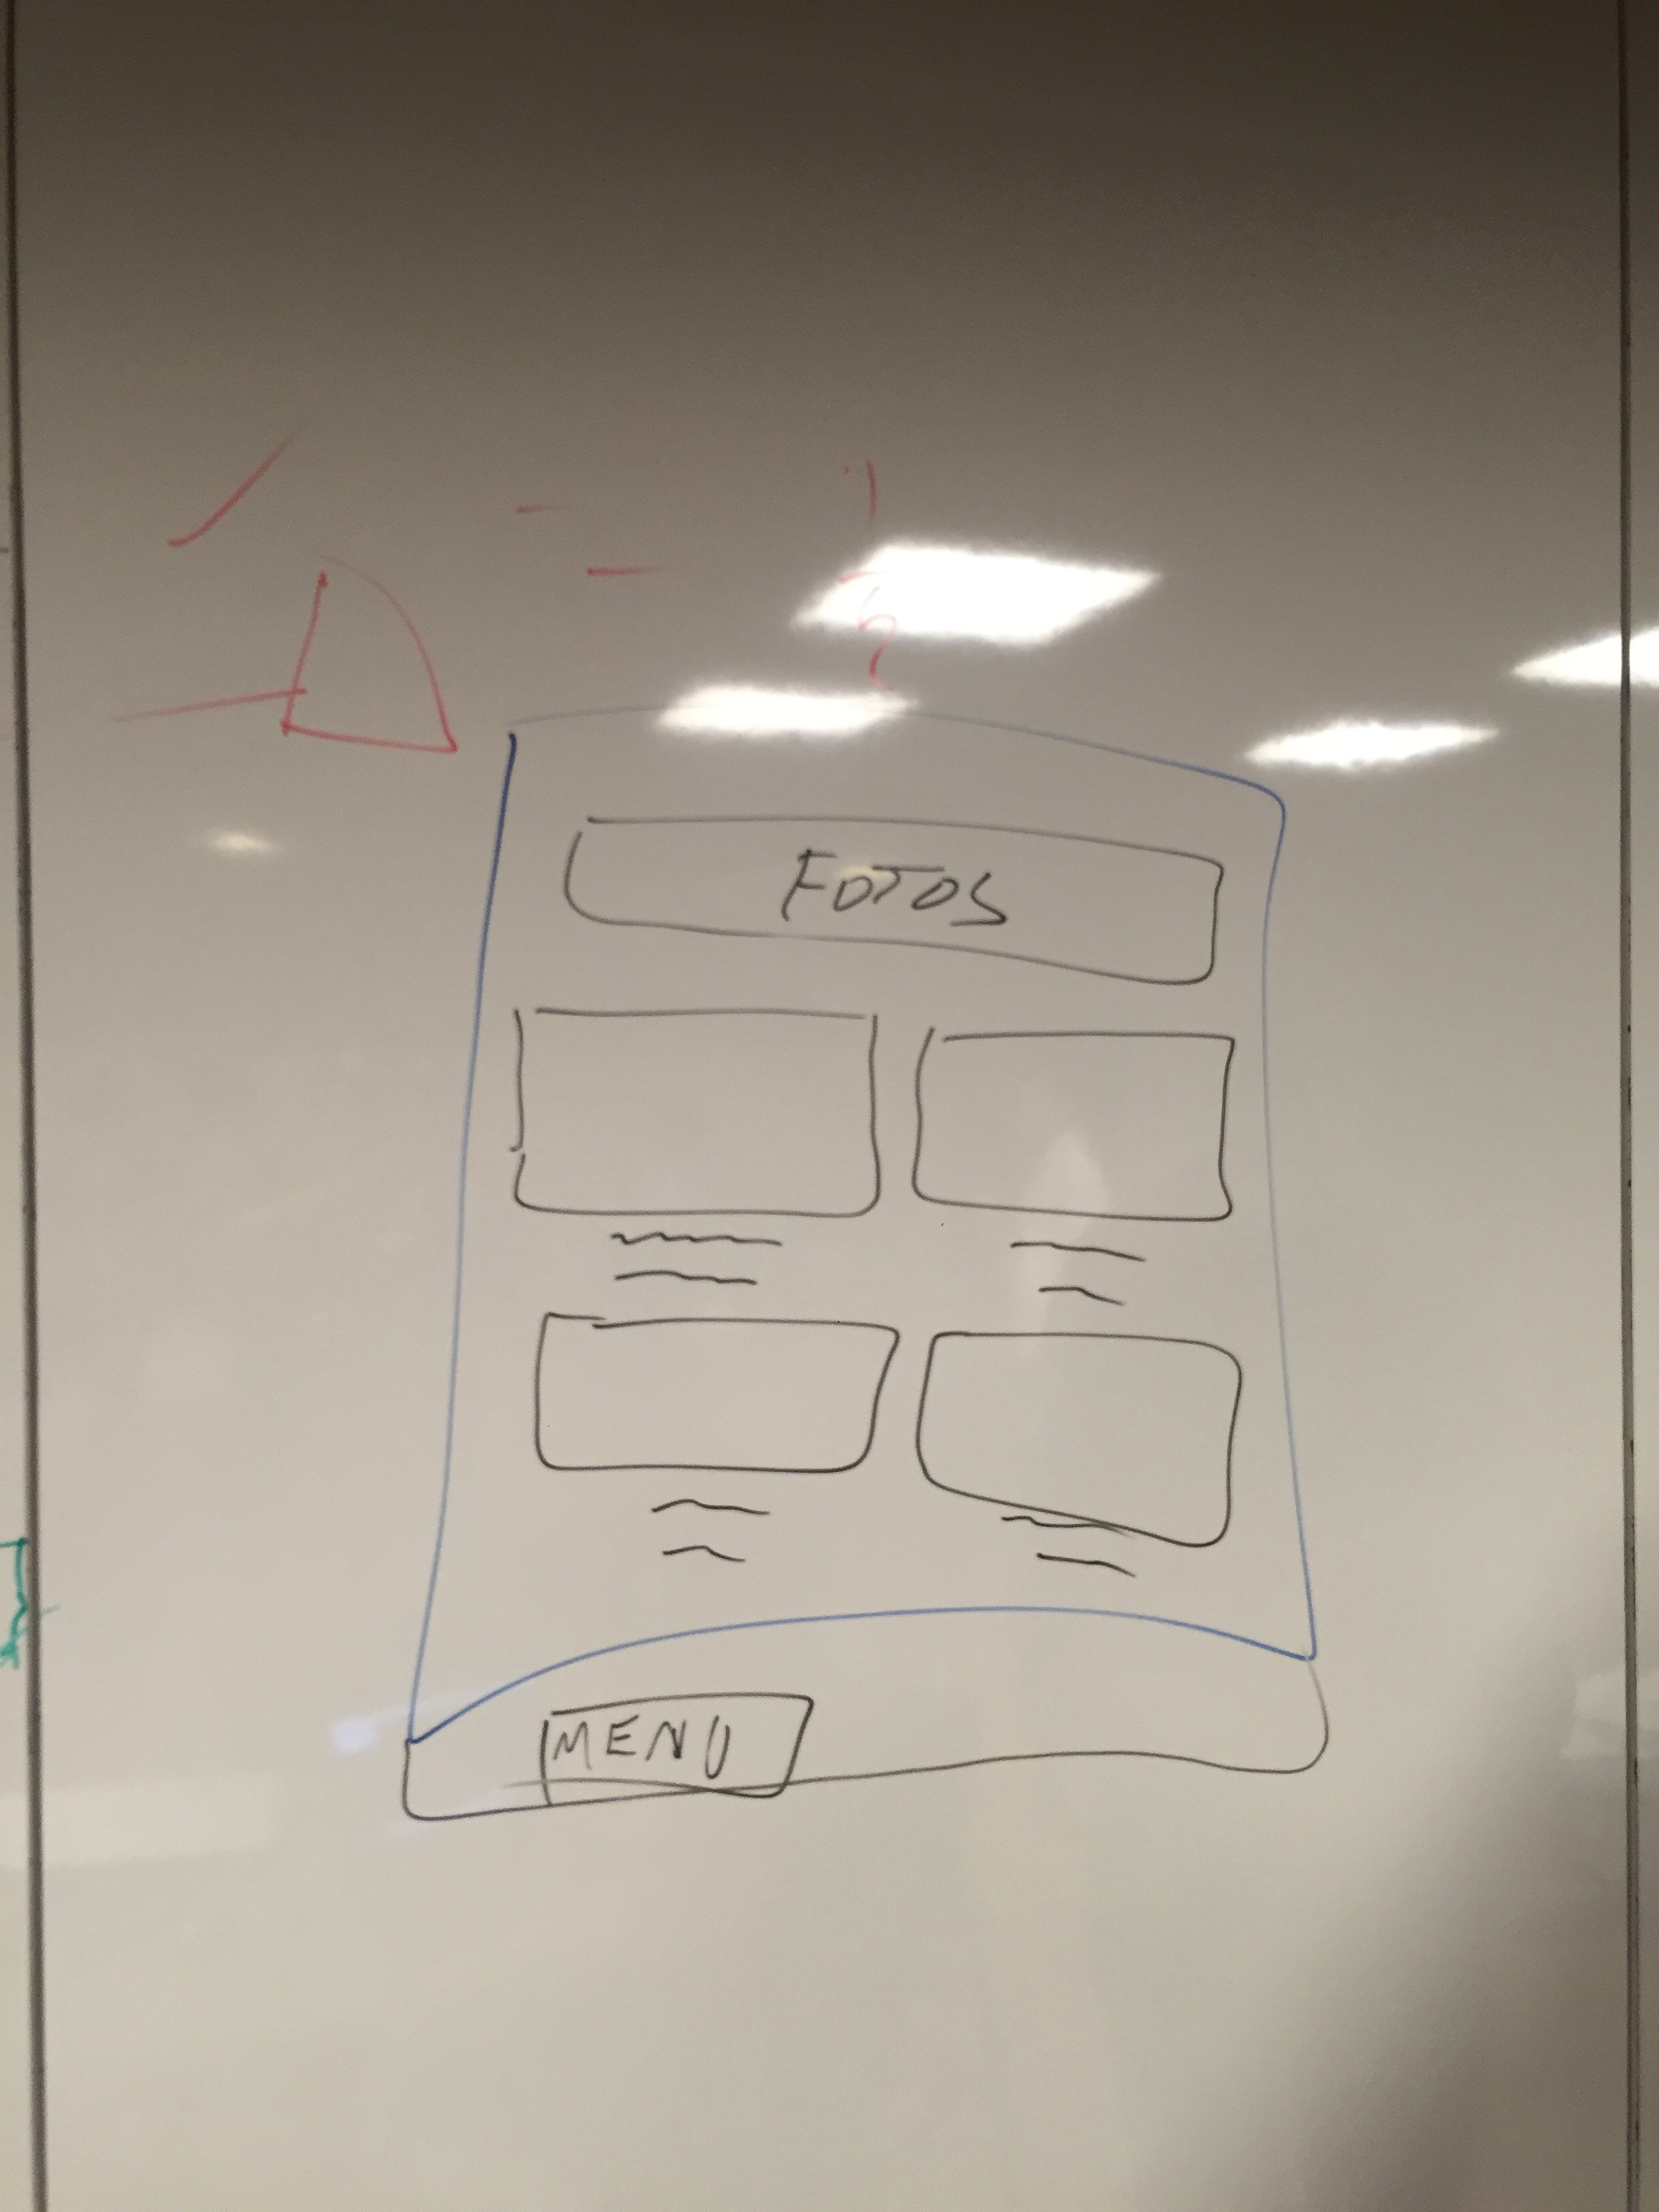 FOTOS
MENU